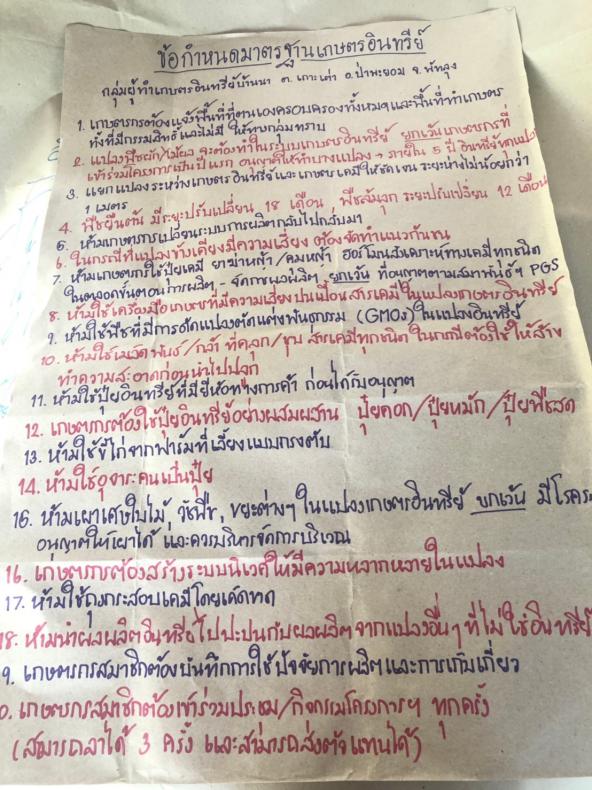 ข้อกำหนดมาตรฐานเกษตรอินทรีย์
กลุ่มผู้ทำเกษตรอินทรีย์บ้านนา ต. เกาะเต่า อ. ป่าพะยอม จ. พัทลุง
1. เกษตรกรต้องแจ้งพื้นที่ที่ตนเองครอบครองทั้งหมดและพื้นที่ทำเกษตร
ทั้งที่มีกรรมสิทธิ์และไม่มี ให้ทางกลุ่มทราบ
2. แปลงพืชผัก/ไม้ผล จะต้องทำในระบบเกษตรอินทรีย์ ยกเว้นเกษตรกรที่
เข้าร่วมโครงการเป็นปีแรก อนุญาตให้ทำบางแปลง → ภายใน 5 ปี อินทรีย์ทุกแปลง
3. แยกแปลงระหว่างเกษตรอินทรีย์และเกษตรเคมีให้ชัดเจน ระยะห่างไม่น้อยกว่า
1 เมตร
4. พืชยืนต้น มีระยะปรับเปลี่ยน 18 เดือน, พืชล้มลุก ระยะปรับเปลี่ยน 12 เดือน
5. ห้ามเกษตรกรเปลี่ยนระบบการผลิตกลับไปกลับมา
6. ในกรณีที่แปลงข้างเคียงมีความเสี่ยง ต้องจัดทำแนวกันชน
7. ห้ามเกษตรกรใช้ปุ๋ยเคมี ยาฆ่าหญ้า/คุมหญ้า ฮอร์โมนสังเคราะห์ทางเคมีทุกชนิด
ในตลอดขั้นตอนการผลิต - จัดการผลผลิต ยกเว้น ที่อนุญาตตามสมาพันธ์ฯ PGS
8. ห้ามใช้เครื่องมือเกษตรที่มีความเสี่ยงปนเปื้อนสารเคมีในแปลงเกษตรอินทรีย์
9. ห้ามใช้พืชที่มีการดัดแปลงตัดแต่งพันธุกรรม (GMOs) ในแปลงอินทรีย์
10. ห้ามใช้เมล็ดพันธุ์/กล้า ที่คลุก/ชุบ สารเคมีทุกชนิด ในกรณีต้องใช้ ให้ล้าง
ทำความสะอาดก่อนนำไปปลูก
11. ห้ามใช้ปุ๋ยอินทรีย์ที่มียี่ห้อทางการค้า ก่อนได้รับอนุญาต
12. เกษตรกรต้องใช้ปุ๋ยอินทรีย์อย่างผสมผสาน ปุ๋ยคอก/ปุ๋ยหมัก/ปุ๋ยพืชสด
13. ห้ามใช้ขี้ไก่จากฟาร์มที่เลี้ยงแบบกรงตับ
14. ห้ามใช้อุจจาระคนเป็นปุ๋ย
15. ห้ามเผาเศษใบไม้, วัชพืช, ขยะต่างๆ ในแปลงเกษตรอินทรีย์ ยกเว้น มีโรคระ
อนุญาตให้เผาได้ และควรบริหารจัดการบริเวณ
16. เกษตรกรต้องสร้างระบบนิเวศให้มีความหลากหลายในแปลง
17. ห้ามใช้ถุงกระสอบเคมีโดยเด็ดขาด
18. ห้ามนำผลผลิตอินทรีย์ไปปะปนกับผลผลิตจากแปลงอื่นๆ ที่ไม่ใช่อินทรีย์
9. เกษตรกรสมาชิกต้องบันทึกการใช้ปัจจัยการผลิตและการเก็บเกี่ยว
0. เกษตรกรสมาชิกต้องเข้าร่วมประชุม/กิจกรรมโครงการฯ ทุกครั้ง
(สามารถลาได้ 3 ครั้ง และสามารถส่งตัวแทนได้)